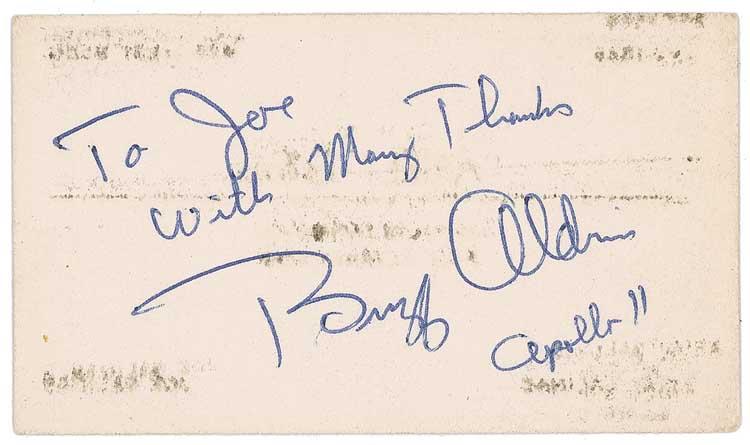 To Joe
With Many Thanks
Buzz Aldrin
Apollo 11